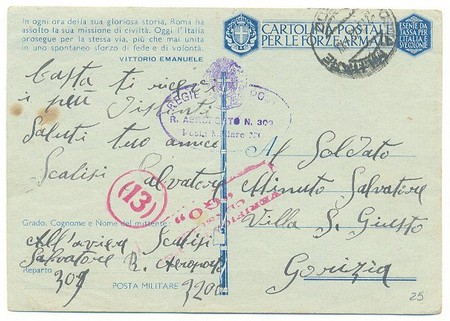 In ogni ora della sua gloriosa storia, Roma ha
assolto la sua missione di civiltà. Oggi l'Italia
prosegue per la stessa via, più che mai unita
in uno spontaneo sforzo di fede e di volontà.
VITTORIO EMANUELE
CARTOLINA POSTALE
PER LE FORZE ARMATE
ESENTE DA
TASSA PER
L'ITALIA E
SUE COLONIE
ti
i più
Saluti tuo amico
Scalisi Salvatore
REGIE
R. AEROPORTO N.
Posta Militare
(13)
VERIFICATO
Al Soldato
Minuto Salvatore
Villa S. Giusto
Gorizia
Grado, Cognome e Nome del mittente
All'aviere Scalisi
Salvatore R. Aeroporto
Reparto 309
POSTA MILITARE 3200
25